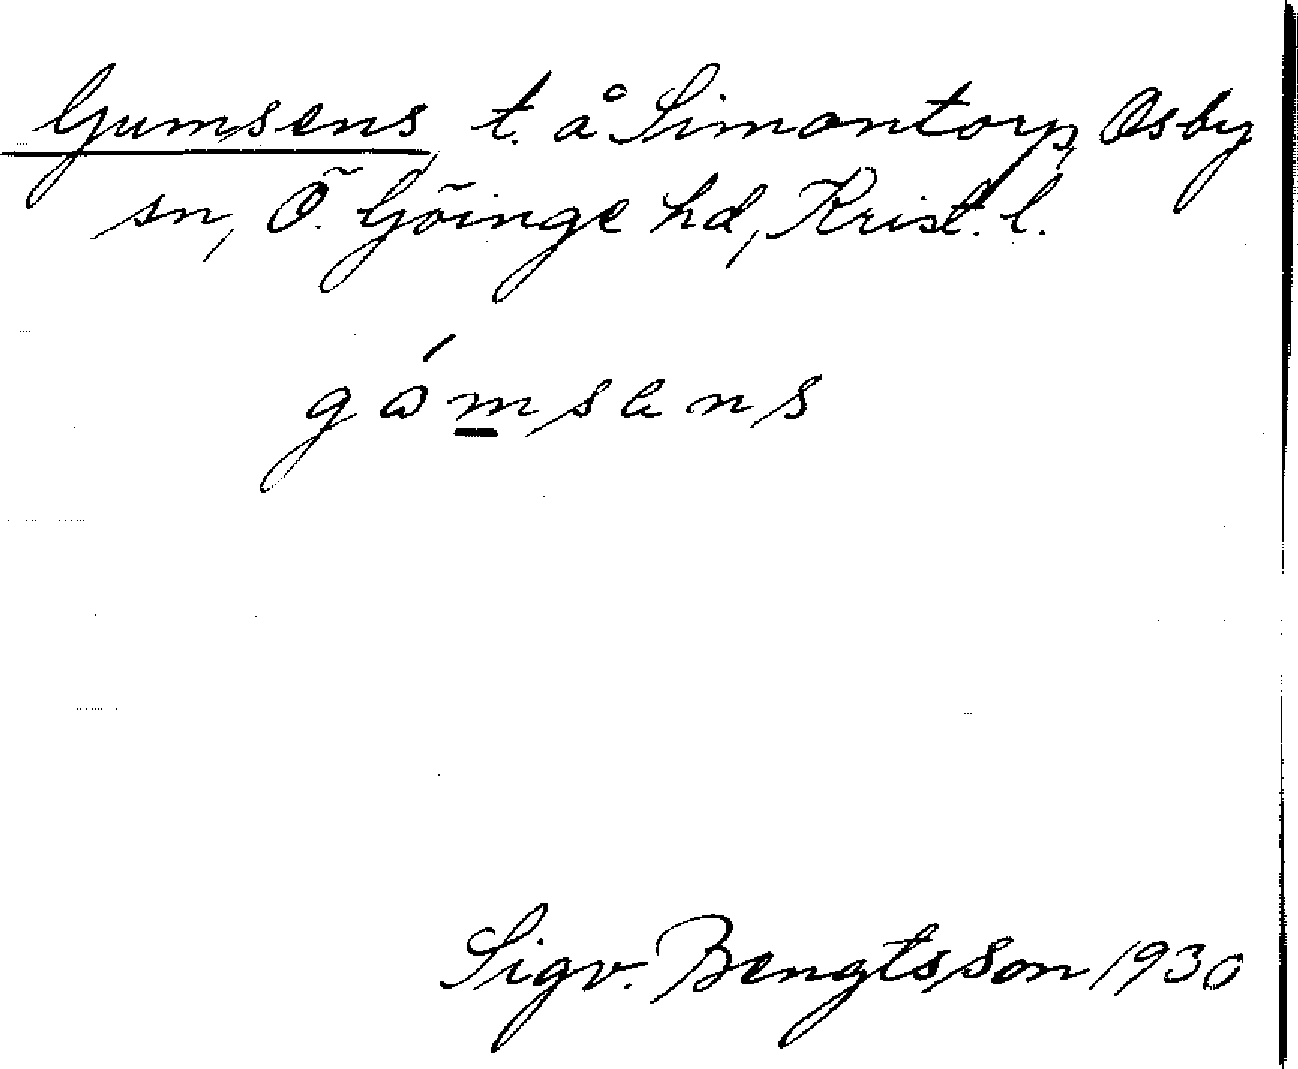 Gumsens, t. å Simontorp, Osby
sn, Ö. Göinge hd, Krist. l.
gómsens
Sigv. Bengtsson 1930